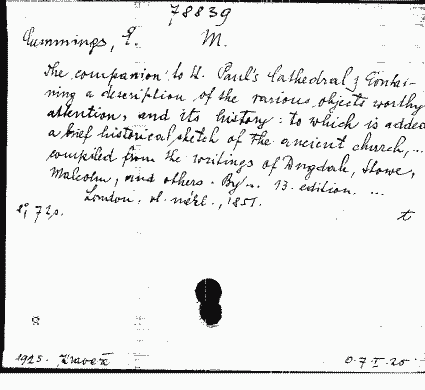 78839
Cummings, E. M.
The companion to St. Paul's Cathedral; Contai-
ning a description of the various objects worthy
attention, and its history: to which is added
a brief historical sketch of the ancient church,...
compiled from the writings of Dugdale, Stowe,
Malcolm, and others. By... 13. edition. ...
London,
8°, 72p. t
1925.